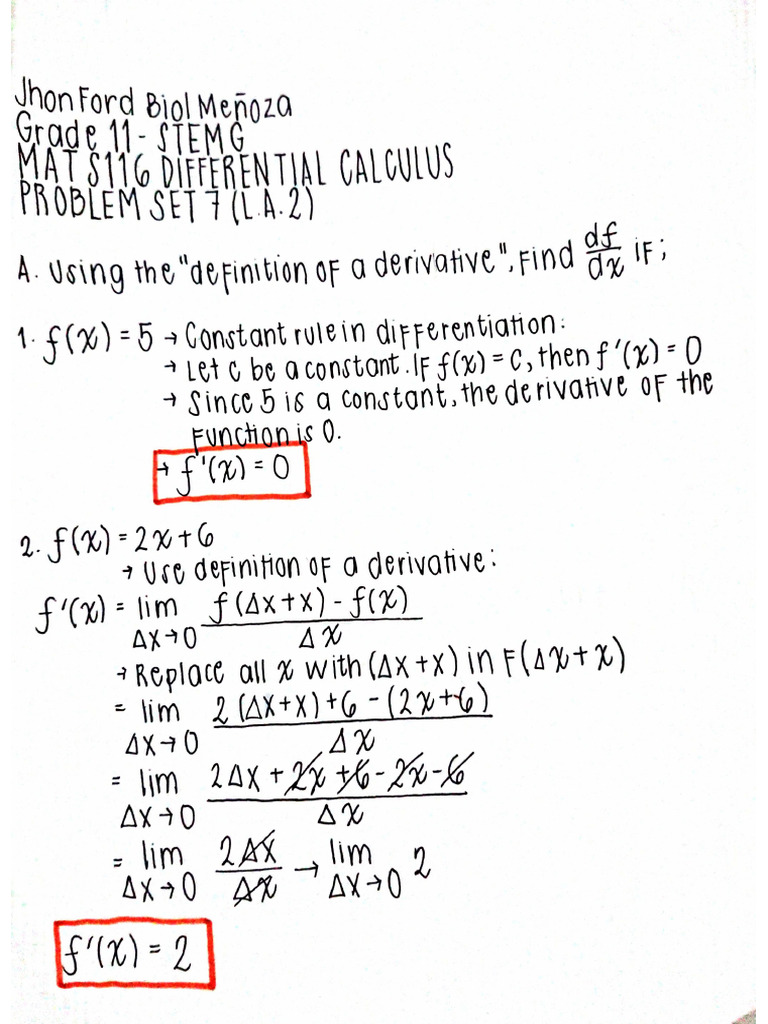 Jhon Ford Biol Meñoza
Grade 11 - STEM G
MAT S116 DIFFERENTIAL CALCULUS
PROBLEM SET 7 (L.A.2)
A. Using the "definition of a derivative", Find df/dx if;
1. f(x) = 5 → Constant rule in differentiation:
→ Let C be a constant. If f(x) = C, then f'(x) = 0
→ Since 5 is a constant, the derivative of the
function is 0.
→ f'(x) = 0
2. f(x) = 2x + 6
→ Use definition of a derivative:
f'(x) = lim Δx→0 (f(Δx+x) - f(x))/Δx
→ Replace all x with (Δx+x) in F(Δx+x)
= lim Δx→0 (2(Δx+x)+6-(2x+6))/Δx
= lim Δx→0 (2Δx+2x+6-2x-6)/Δx
= lim Δx→0 2Δx/Δx → lim Δx→0 2
f'(x) = 2